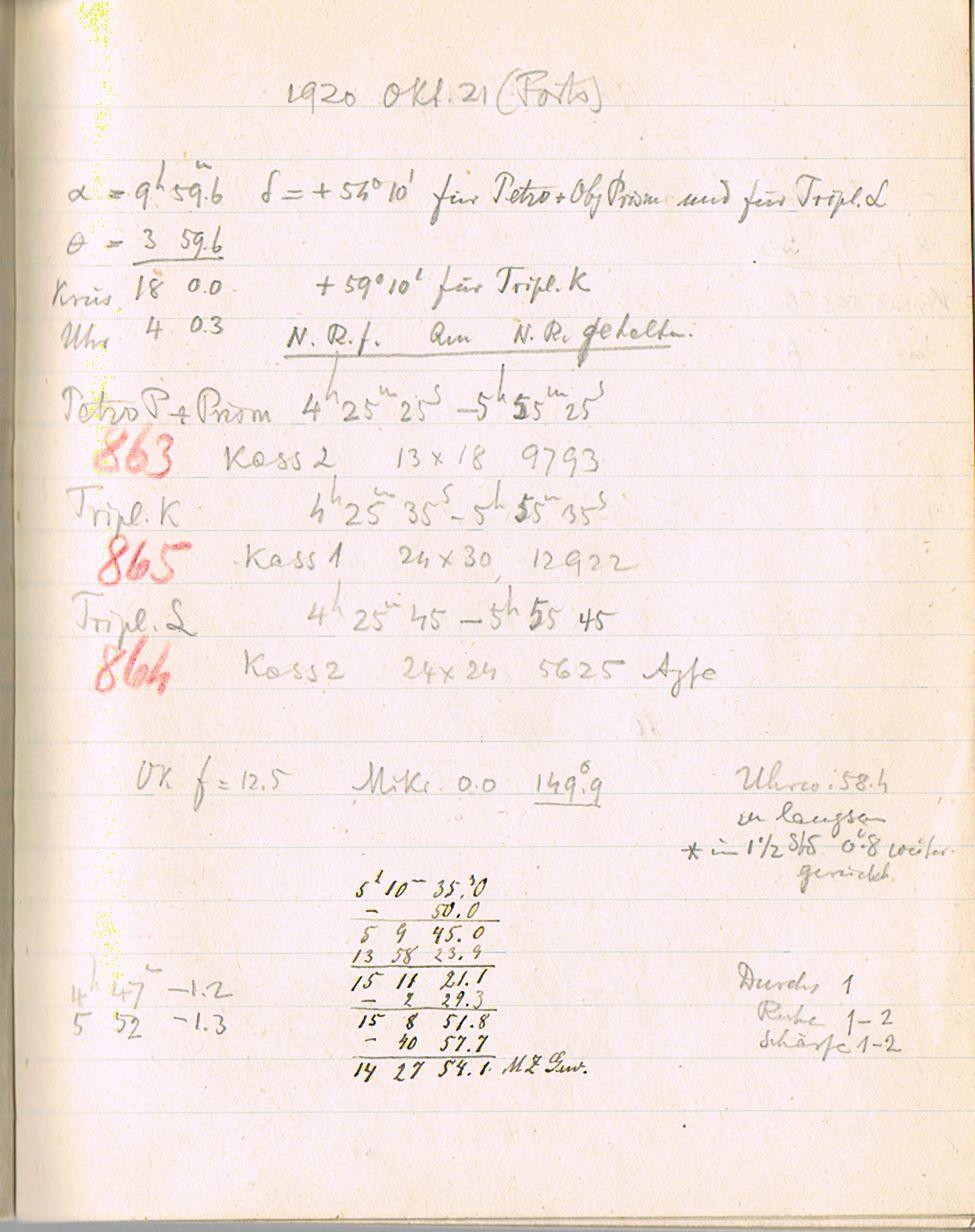 1920 Okt. 21 (Forts)
α = 9h 59.6m δ = + 54° 10' für Petzv + Obj Prism und für Tripl. L
θ = 3 59.6
Kreis 18 0.0 + 59° 10' für Tripl. K
Uhr 4 0.3 N. R. f. Am N. R. gehalten.
Petzv P + Prism 4h 25m 25s – 5h 55m 25s
863 Kass 2 13 × 18 9793
Tripl. K 4h 25m 35s – 5h 55m 35s
865 Kass 1 24 × 30, 12922
Tripl. L 4h 25m 45 – 5h 55 45
864 Kass 2 24 × 24 5625 Agfa
OK f = 12.5 Mikr. 0.0 149.9 Uhrw. 58.4
zu langsam
* in 1 1/2 Std 0.8 weiter
gerückt.
5h 10m 35.s0
– 50.0
5 9 45.0
13 58 23.9
4h 47m –1.2 15 11 21.1 Durchs 1
– 2 29.3
5 52 –1.3 15 8 51.8 Ruhe 1–2
– 40 57.7 Schärfe 1–2
14 27 54.1 MZ Grw.